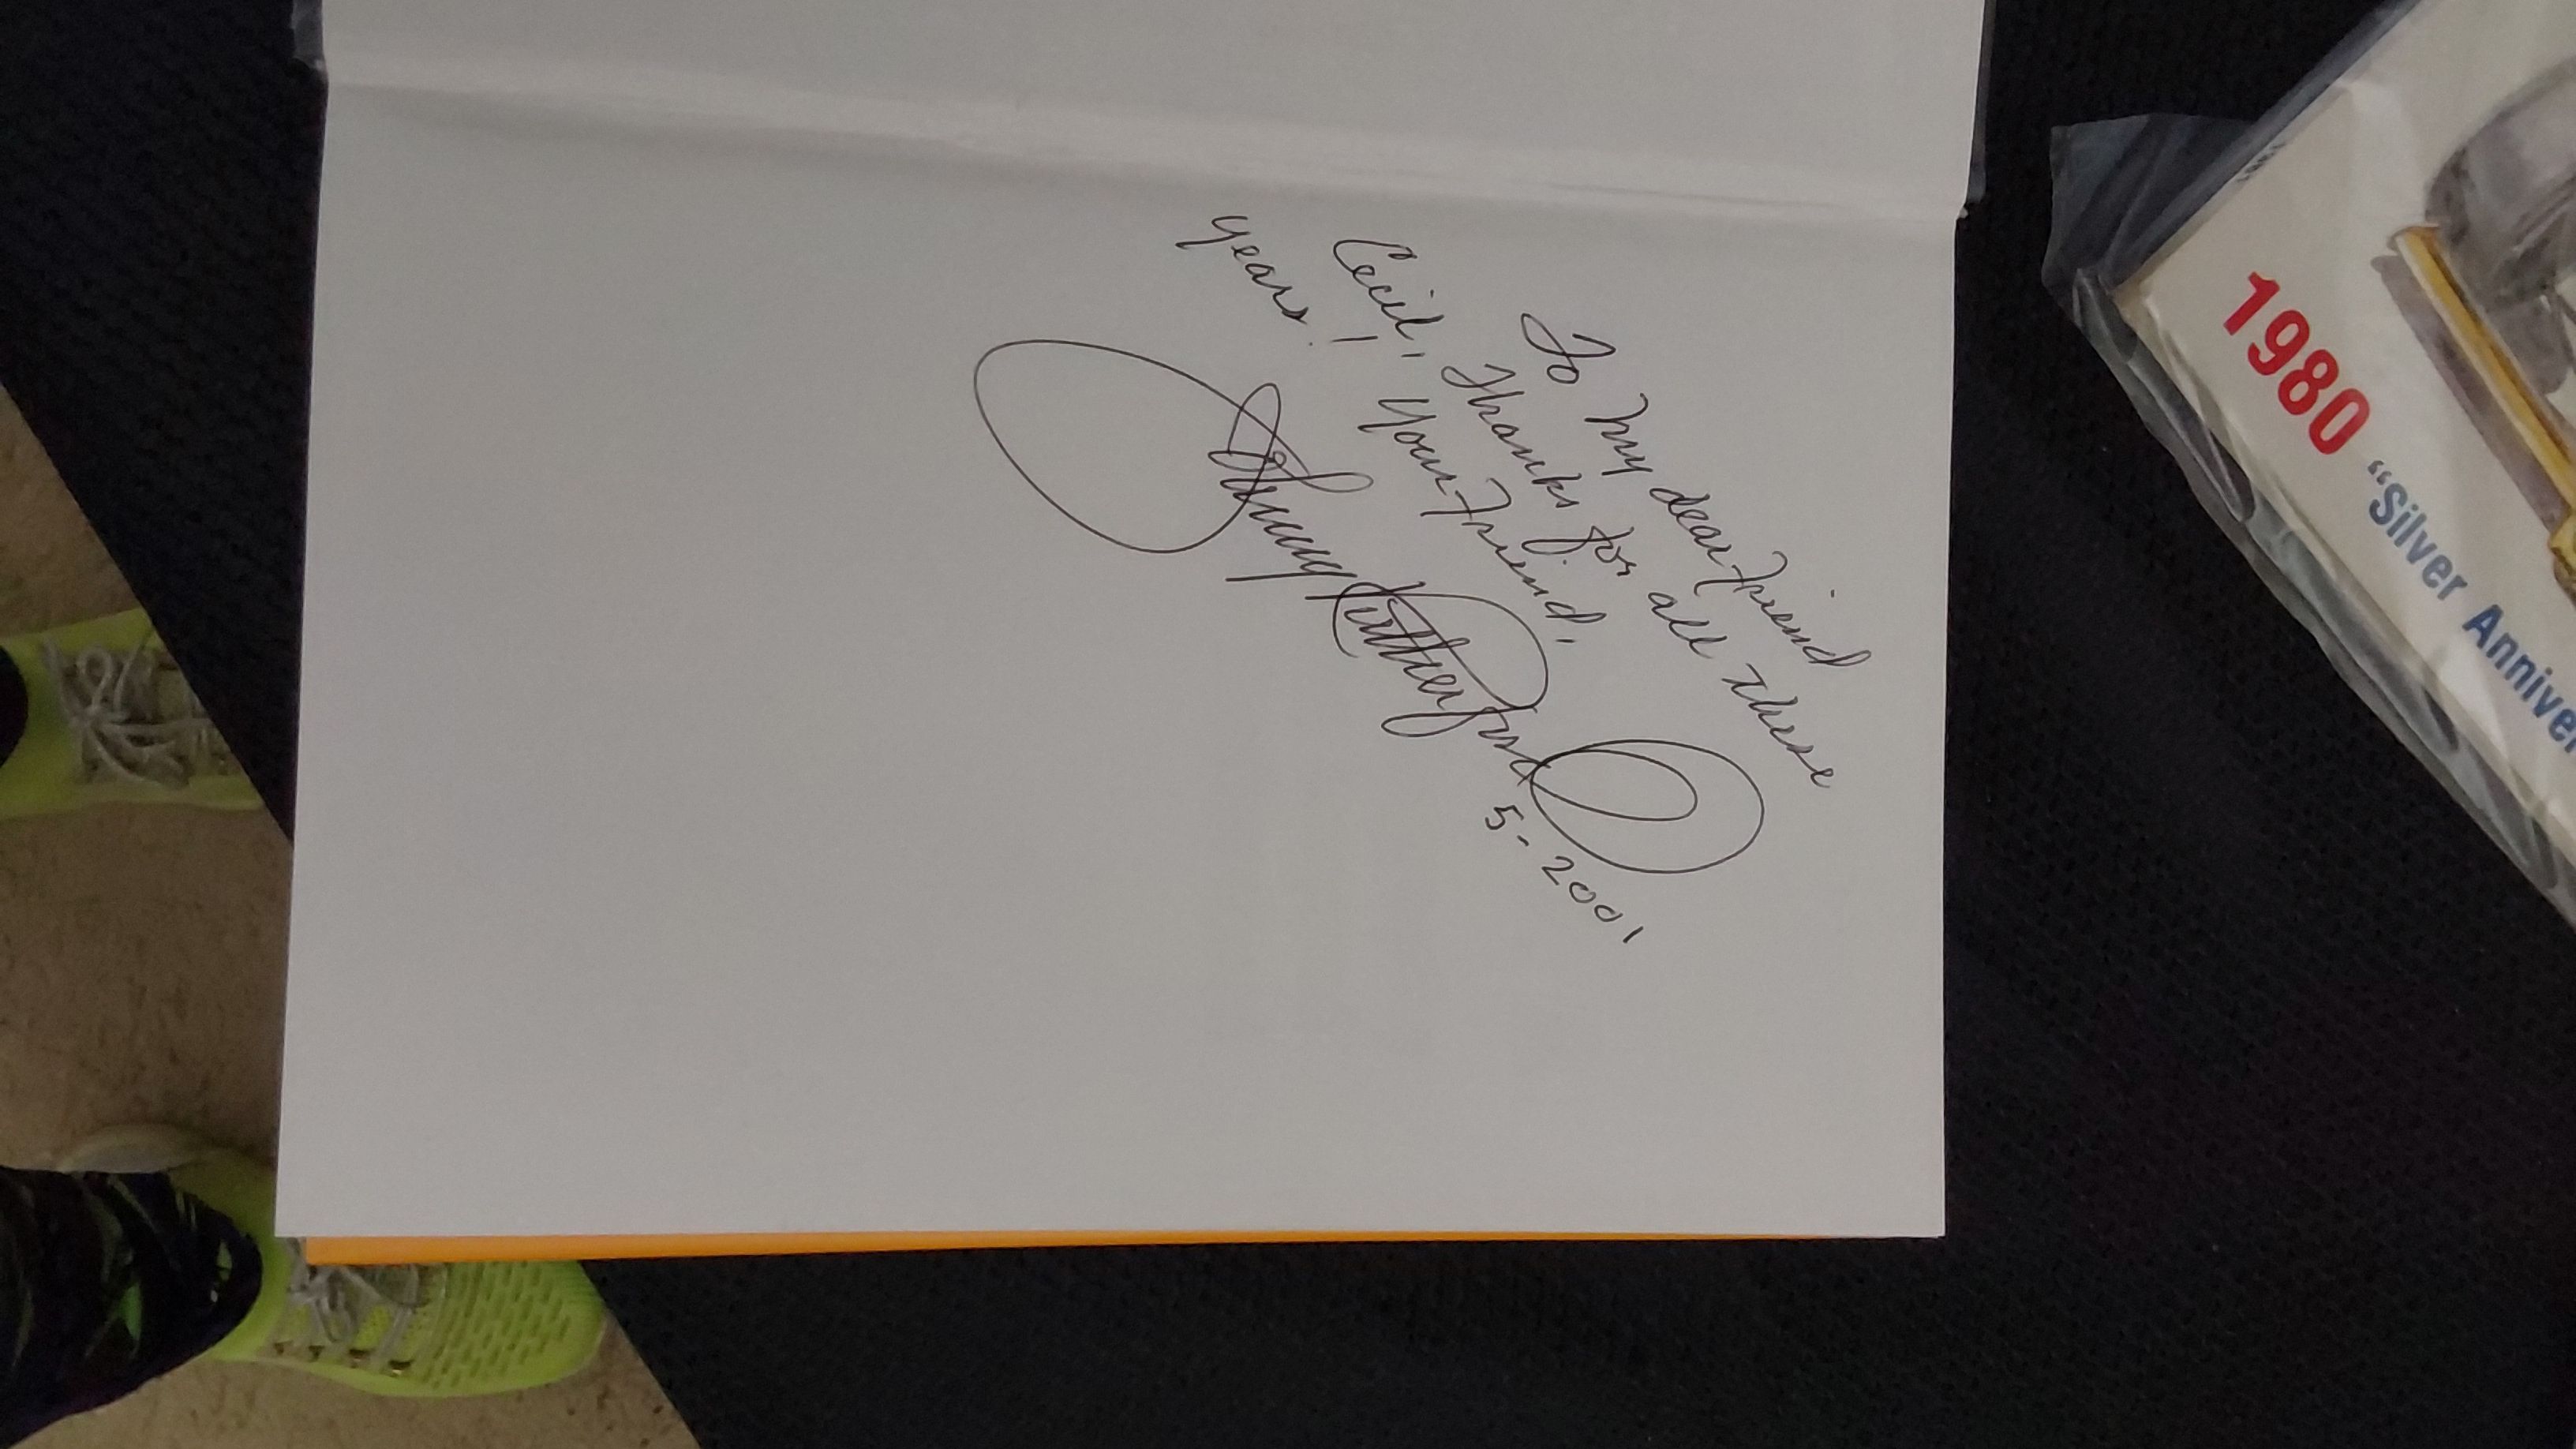 To My dear Friend
Cecil, Thanks for all these
years! Your Friend,
Johnny Rutherford
5-2001
1980 "Silver Anniver